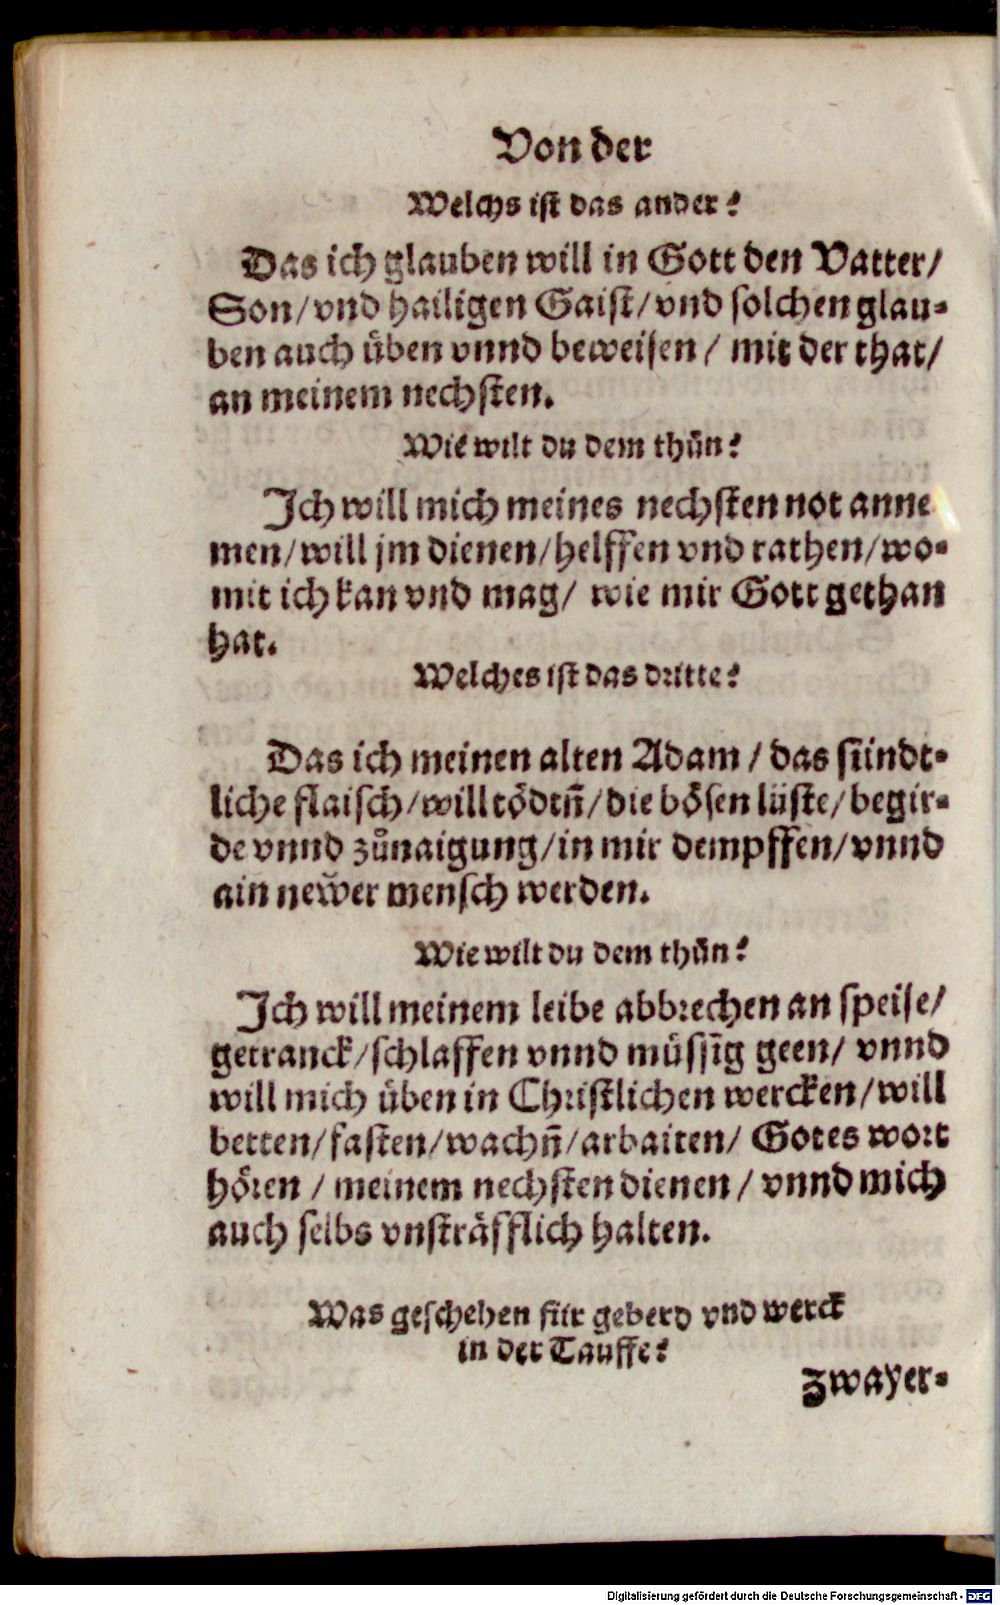 Von der
Welchs ist das ander?
Das ich glauben will in Gott den Vatter/
Son/vnd hailigen Gaist/vnd solchen glau-
ben auch üben vnnd beweisen / mit der that/
an meinem nechsten.
Wie wilt du dem thůn?
Ich will mich meines nechsten not anne
men/will jm dienen/helffen vnd rathen/wo-
mit ich kan vnd mag/ wie mir Gott gethan
hat.
Welches ist das dritte?
Das ich meinen alten Adam / das sündt-
liche flaisch/will tödtn̄/die bösen lüste/begir-
de vnnd zůnaigung/in mir dempffen/vnnd
ain newer mensch werden.
Wie wilt du dem thůn?
Ich will meinem leibe abbrechen an speise/
getranck/schlaffen vnnd müssig geen/ vnnd
will mich üben in Christlichen wercken/will
betten/fasten/wachn̄/arbaiten/ Gotes wort
hören / meinem nechsten dienen / vnnd mich
auch selbs vnsträfflich halten.
Was geschehen für geberd vnd werck
in der Tauffe?
Zwayer-
Digitalisierung gefördert durch die Deutsche Forschungsgemeinschaft - DFG